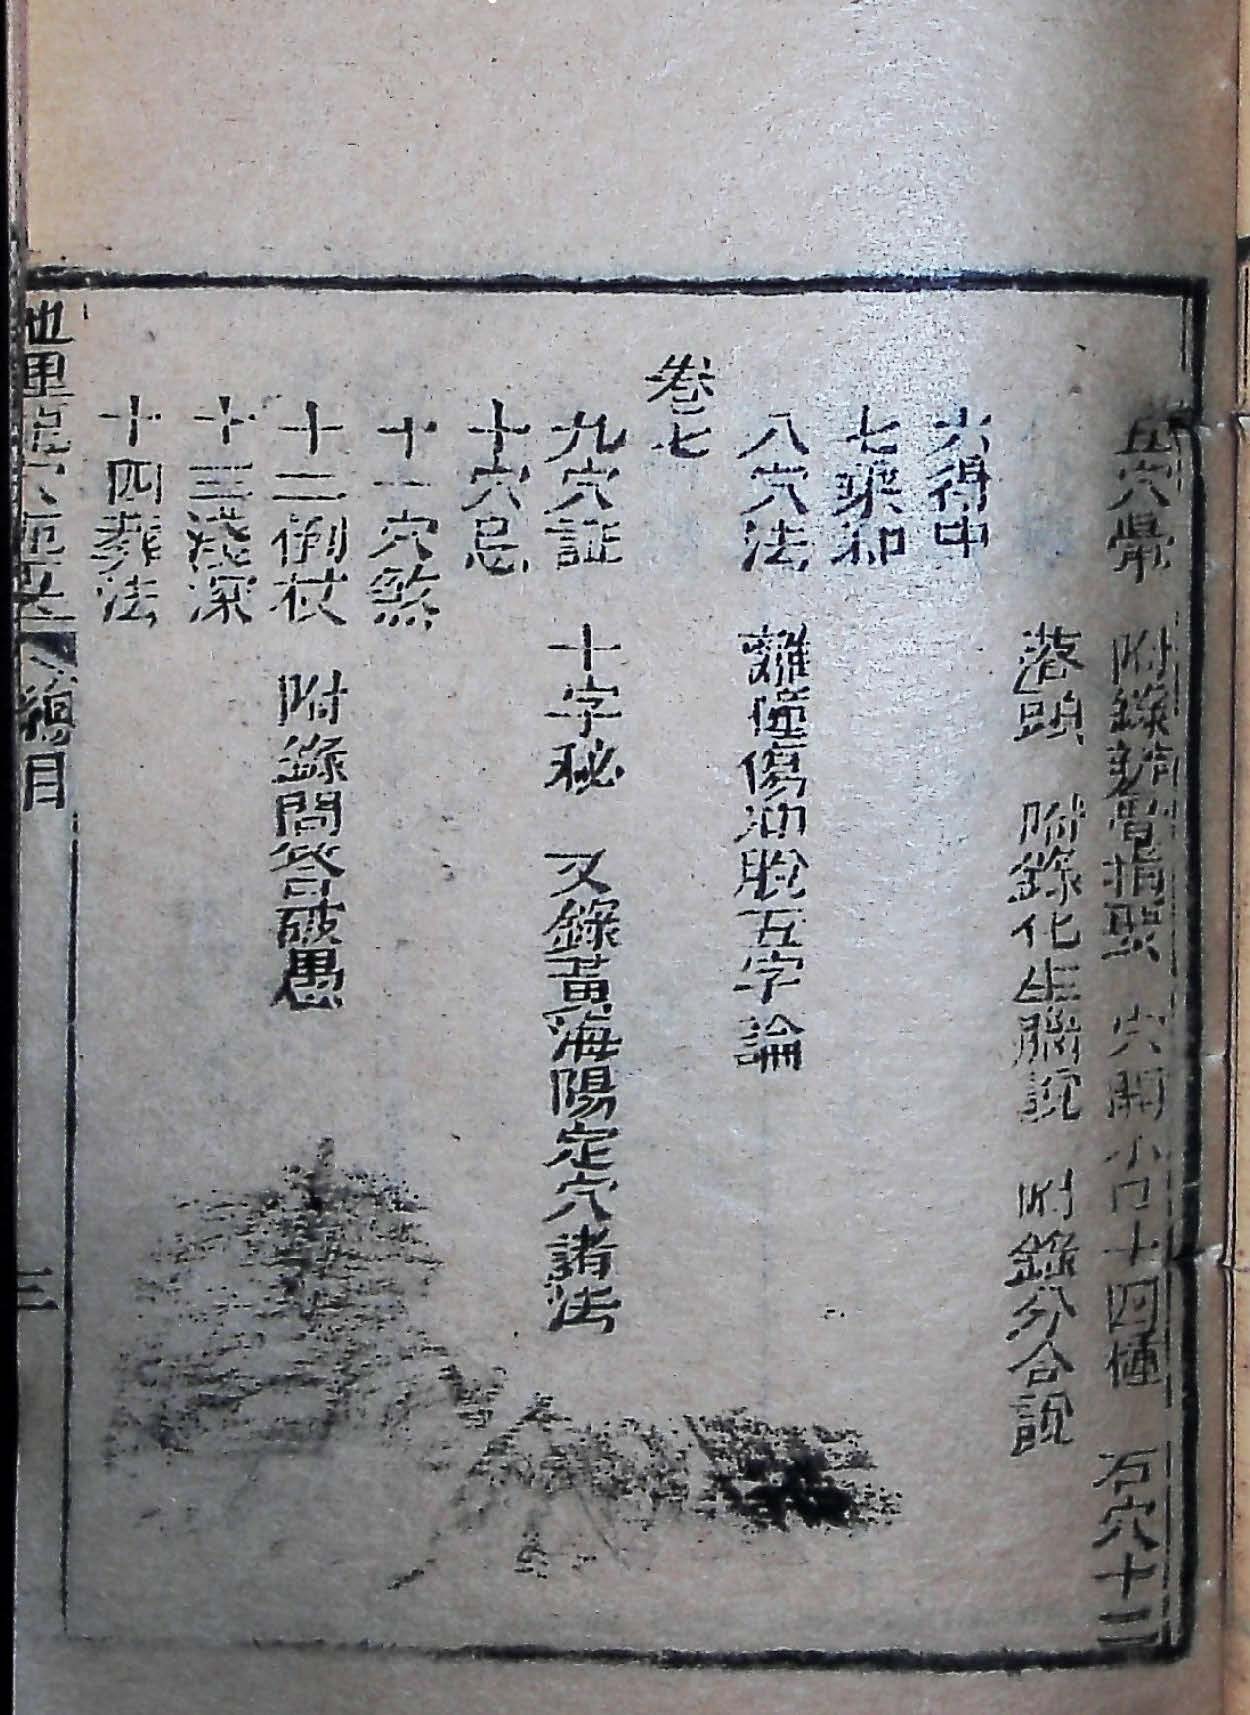 五穴暈 附錄 穴開小口十四種 石穴十二
落頭 附錄化生腦說 附錄分合說
六得中
七乘和
八穴法 離 傷 脫五字論
卷七
九穴証 十字秘 又錄黃海陽定穴諸法
十穴忌
十一穴煞
十二倒杖 附錄問答破愚
十三淺深
十四葬法
地理 穴 總目 三